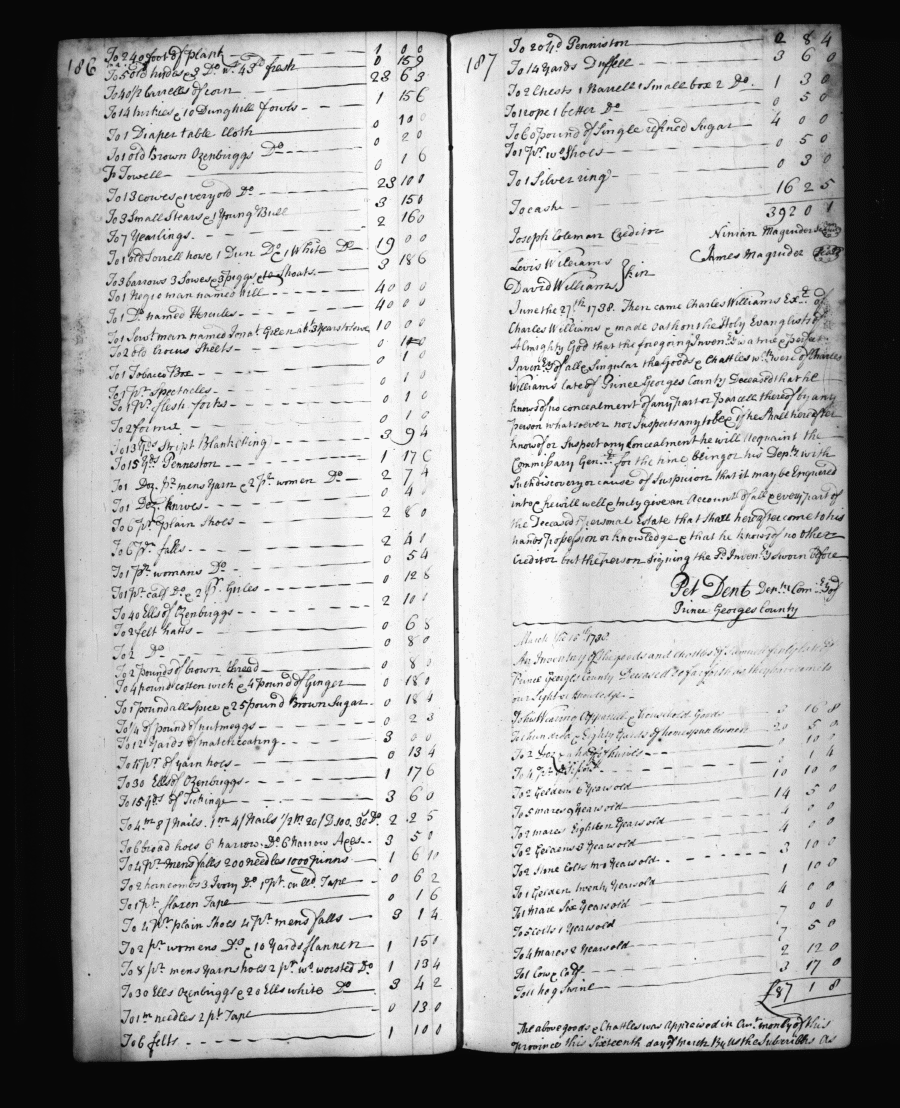 186
To 240 foot of plank 1 0 0
To 5 old hides & 3 Do. wt. 43 fresh 0 15 9
To 40 1/2 barrells of corn 23 6 3
To 14 turkies & 10 Dunghill fowls 1 15 6
To 1 Diaper table Cloth 0 10 0
To 1 old Brown Ozenbriggs Do 0 2 0
To Towell 0 1 6
To 13 cowes & 1 very old Do 23 10 0
To 3 Small Stears & 1 Young Bull 3 15 0
To 7 Yearlings 2 16 0
To 1 old Sorrell horse 1 Dun Do & 1 White Do 19 0 0
To 3 barrows 3 Sowes & 3 piggs & 10 Shoats 3 18 6
To 1 Negro man named Will 40 0 0
To 1 Do named Hercules 40 0 0
To 1 Servt. man named Jonat. Green abt. 3 Years to Serve 10 0 0
To 2 old Crocus Sheets
To 1 Tobacco Box 0 1 0
To 1 pr. Spectacles 0 1 0
To 1 pr. flesh forks 0 1 0
To 2 formes 0 1 0
To 13 Yds Stript Blanketing 3 9 4
To 15 Yds Penneston 1 17 6
To 1 Doz. pr. mens Yarn & 2 pr. women Do 2 7 4
To 1 Doz. knives 0 4 0
To 6 pr. plain Shoes 2 8 0
To 6 pr. falls 2 4 0
To 1 pr. womans Do 0 5 4
To 1 pr. calf Do & 2 pr. Girles 0 12 8
To 40 Ells of Ozenbriggs 2 10 0
To 2 felt hatts 0 6 8
To 2 Do 0 8 0
To 2 pounds of brown thread 0 8 0
To 4 pound Cotton wick & 4 pound of Ginger 0 18 0
To 1 pound allspice & 25 pound Brown Sugar 0 18 4
To 1/4 of pound of nutmeggs 0 2 3
To 12 Yards of match coating 3 0 0
To pr. of Yarn hoes 0 13 4
To 30 Ells of Ozenbriggs 1 17 6
To 15 Yds of Ticking 3 6 0
To 4m 8/ Nails 1m 4/ Nails 1/2m 20/ D. 100. 30 Do 2 2 5
To 6 broad hoes 6 narrow Do 6 Narrow Axes 3 5 0
To 4 pr. mens falls 200 needles 1000 pinns 1 6 10
To 2 horn combs 3 Ivory Do 1 pt. Cull'd Tape 0 6 2
To 1 pt. flaxen Tape 0 1 6
To 4 pr. plain Shoes 4 pr. mens falls 3 1 4
To 2 pr. womens Do & 10 Yards flannen 1 15 1
To 8 pr. mens Yarn hoes 2 pr. wo. worsted Do 1 13 4
To 30 Ells Ozenbriggs & 20 Ells white Do 3 4 2
To 1m needles 2 pt. Tape 0 13 0
To 6 felts 1 10 0
187
To 20 Yd Penniston 2 8 4
To 14 Yards Duffell 3 6 0
To 2 Chests 1 Barrell 1 Small box 2 Do. 1 3 0
To 1 rope 1 better Do 0 5 0
To 60 pound of Single refined Sugar 4 0 0
To 1 pr. wo Shoes 0 5 0
To 1 Silver ring 0 3 0
To cash 16 2 5
392 0 1
Joseph Coleman Creditor Ninian Magruder
Lewis Williams James Magruder
David Williams } kin
June the 27th 1738. Then came Charles Williams Exr. of
Charles Williams & made Oath on the Holy Evangelists of
Almighty God that the foregoing Inventy. is a true & perfect
Inventy. of all & Singular the Goods & Chattles wch. were of Charles
Williams late of Prince Georges County Deceased that he
knows of no concealment of any part or parcell thereof by any
person whatsoever nor Suspect any to be & if he shall hereafter
know of or Suspect any Concealment he will acquaint the
Commissary Genll. for the time being or his Depty. with
Such discovery or cause of Suspicion that it may be Enquired
into & he will well & truly give an Account of all & every part of
the Deceased's personal Estate that Shall hereafter come to his
hands possession or knowledge & that he knows of no other
Creditor but the person signing the Sd. Inventy. Sworn before
Pet Dent Depty. Comry. of
Prince Georges County
March the 16th 1738
An Inventory of the goods and chattles of
Prince Georges County Deceased So far forth as they have come to
our Sight & knowledge
To his Wearing Apparell & Household Goods 3 16 8
To hundred & Eighty Yards of homespun linnen 20 5 0
To 2 Geldens 6 Years old 10 10 0
To 5 mares 9 Years old 14 5 0
To 2 mares Eighteen Years old 4 0 0
To 2 Geldens 3 Years old 4 0 0
To 2 Stone Colts two Years old 3 10 0
To 1 Gelden twenty Years old 1 10 0
To 1 Mare Six Years old 4 0 0
To 5 colts 1 Years old 7 0 0
To 4 mares 2 Years old 7 5 0
To 1 Cow & Calf 2 12 0
To 11 hog Swine 3 17 0
£87 1 8
The above goods & Chattles was Appraised in Curt. money of this
province this Sixteenth day of March By us the Subscribers As